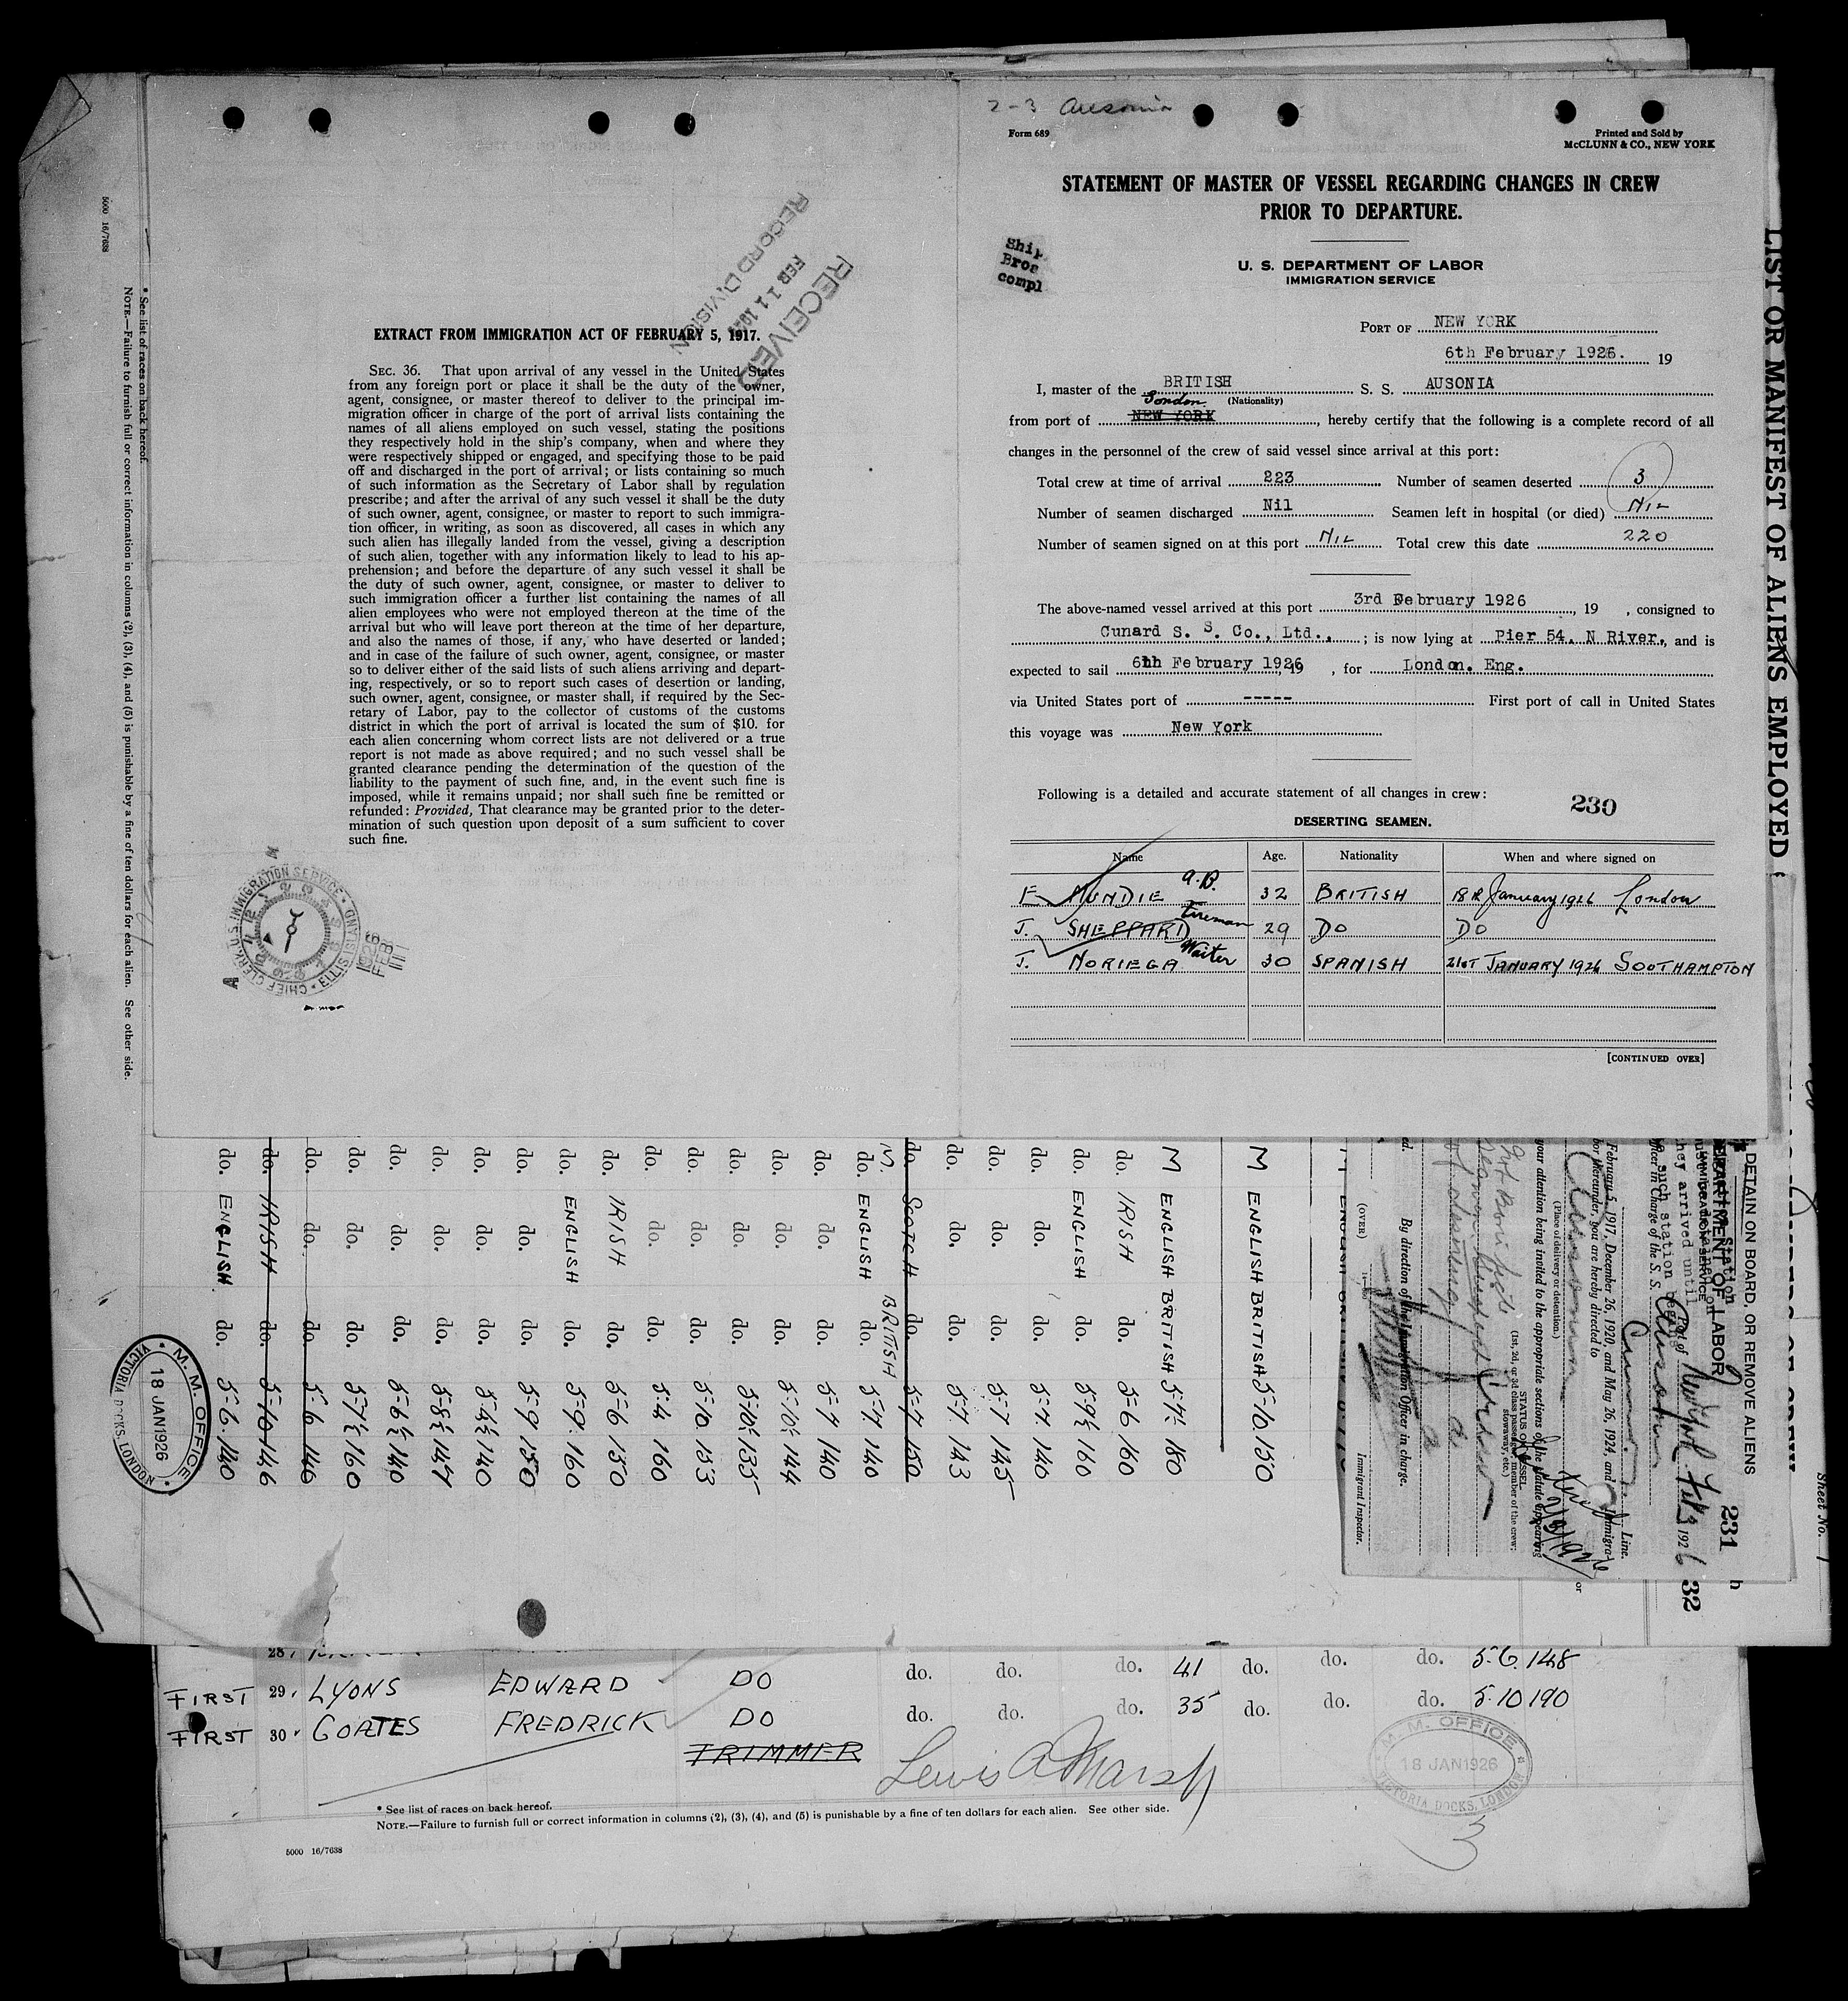 2-3 Ausonia
Form 689
Printed and Sold by
McCLUNN & CO., NEW YORK
STATEMENT OF MASTER OF VESSEL REGARDING CHANGES IN CREW
PRIOR TO DEPARTURE.
Ship
Bros
compl
U. S. DEPARTMENT OF LABOR
IMMIGRATION SERVICE
PORT OF NEW YORK
6th February 1926. 19
I, master of the BRITISH S. S. AUSONIA
London (Nationality)
from port of NEW YORK, hereby certify that the following is a complete record of all
changes in the personnel of the crew of said vessel since arrival at this port:
Total crew at time of arrival 223 Number of seamen deserted 3
Number of seamen discharged Nil Seamen left in hospital (or died) NIL
Number of seamen signed on at this port NIL Total crew this date 220
The above-named vessel arrived at this port 3rd February 1926, 19 , consigned to
Cunard S. S. Co., Ltd., ; is now lying at Pier 54. N River., and is
expected to sail 6th February 1926, 19 , for London. Eng.
via United States port of ----- First port of call in United States
this voyage was New York
Following is a detailed and accurate statement of all changes in crew:
230
DESERTING SEAMEN.
Name Age. Nationality When and where signed on
F. MUNDIE A.B. 32 BRITISH 18th January 1926 London
J. SHEPPARD Fireman 29 DO DO
J. NORIEGA Waiter 30 SPANISH 21ST JANUARY 1926 SOUTHAMPTON
[CONTINUED OVER]
RECEIVED
FEB 11 192
RECORD DIVISION
EXTRACT FROM IMMIGRATION ACT OF FEBRUARY 5, 1917.
SEC. 36. That upon arrival of any vessel in the United States
from any foreign port or place it shall be the duty of the owner,
agent, consignee, or master thereof to deliver to the principal im-
migration officer in charge of the port of arrival lists containing the
names of all aliens employed on such vessel, stating the positions
they respectively hold in the ship's company, when and where they
were respectively shipped or engaged, and specifying those to be paid
off and discharged in the port of arrival; or lists containing so much
of such information as the Secretary of Labor shall by regulation
prescribe; and after the arrival of any such vessel it shall be the duty
of such owner, agent, consignee, or master to report to such immigra-
tion officer, in writing, as soon as discovered, all cases in which any
such alien has illegally landed from the vessel, giving a description
of such alien, together with any information likely to lead to his ap-
prehension; and before the departure of any such vessel it shall be
the duty of such owner, agent, consignee, or master to deliver to
such immigration officer a further list containing the names of all
alien employees who were not employed thereon at the time of the
arrival but who will leave port thereon at the time of her departure,
and also the names of those, if any, who have deserted or landed;
and in case of the failure of such owner, agent, consignee, or master
so to deliver either of the said lists of such aliens arriving and depart-
ing, respectively, or so to report such cases of desertion or landing,
such owner, agent, consignee, or master shall, if required by the Sec-
retary of Labor, pay to the collector of customs of the customs
district in which the port of arrival is located the sum of $10. for
each alien concerning whom correct lists are not delivered or a true
report is not made as above required; and no such vessel shall be
granted clearance pending the determination of the question of the
liability to the payment of such fine, and, in the event such fine is
imposed, while it remains unpaid; nor shall such fine be remitted or
refunded: Provided, That clearance may be granted prior to the deter-
mination of such question upon deposit of a sum sufficient to cover
such fine.
CHIEF CLERK, U.S. IMMIGRATION SERVICE
ELLIS ISLAND
1926
FEB
5000 16/7638
* See list of races on back hereof.
NOTE.—Failure to furnish full or correct information in columns (2), (3), (4), and (5) is punishable by a fine of ten dollars for each alien. See other side.
LIST OR MANIFEST OF ALIENS EMPLOYED
Sheet No. 1
DETAIN ON BOARD, OR REMOVE ALIENS
231
DEPARTMENT OF LABOR
IMMIGRATION SERVICE
Port of New York, Feb 3 1926
32
they arrived until
such station
Officer in Charge of the S. S. Ausonia
Cunard Line.
February 5, 1917, December 26, 1920, and May 26, 1924, and Immigra-
hereunder, you are hereby directed to
(Place of delivery or detention.)
your attention being invited to the appropriate sections of the statute appearing
STATUS ON VESSEL
(1st, 2d, or 3d class passenger, member of the crew,
stowaway, etc.)
By direction of the Immigration Officer in charge.
Immigrant Inspector.
(OVER)
M ENGLISH BRITISH 5-10. 150
M ENGLISH BRITISH 5-7½ 180
do. IRISH do. 5-6 160
do. ENGLISH do. 5-9½ 160
do. do. do. 5-7. 140
do. do. do. 5-7 145
do. do. do. 5-7. 143
do. SCOTCH do. 5-7 150
M. BRITISH
do. ENGLISH do. 5-7. 140
do. do. do. 5-7 140
do. do. do. 5-10½ 144
do. do. do. 5-10½ 135
do. do. do. 5-10. 153
do. do. do. 5-4 160
do. IRISH do. 5-6 150
do. ENGLISH do. 5-9. 160
do. do. do. 5-9 150
do. do. do. 5-4½ 140
do. do. do. 5-8½ 147
do. do. do. 5-6½ 140
do. do. do. 5-7½ 160
do. do. do. 5-6 140
do. IRISH do. 5-10 146
do. ENGLISH do. 5-6. 140
M. M. OFFICE
18 JAN 1926
VICTORIA DOCKS, LONDON
28.
FIRST 29. LYONS EDWARD DO do. do. do. 41 do. do. do. 5-6. 148
FIRST 30. COATES FREDRICK DO do. do. do. 35 do. do. do. 5.10 190
TRIMMER
Lewis A Marsh
M. M. OFFICE
18 JAN 1926
VICTORIA DOCKS, LONDON
3
* See list of races on back hereof.
NOTE.—Failure to furnish full or correct information in columns (2), (3), (4), and (5) is punishable by a fine of ten dollars for each alien. See other side.
5000 16/7638